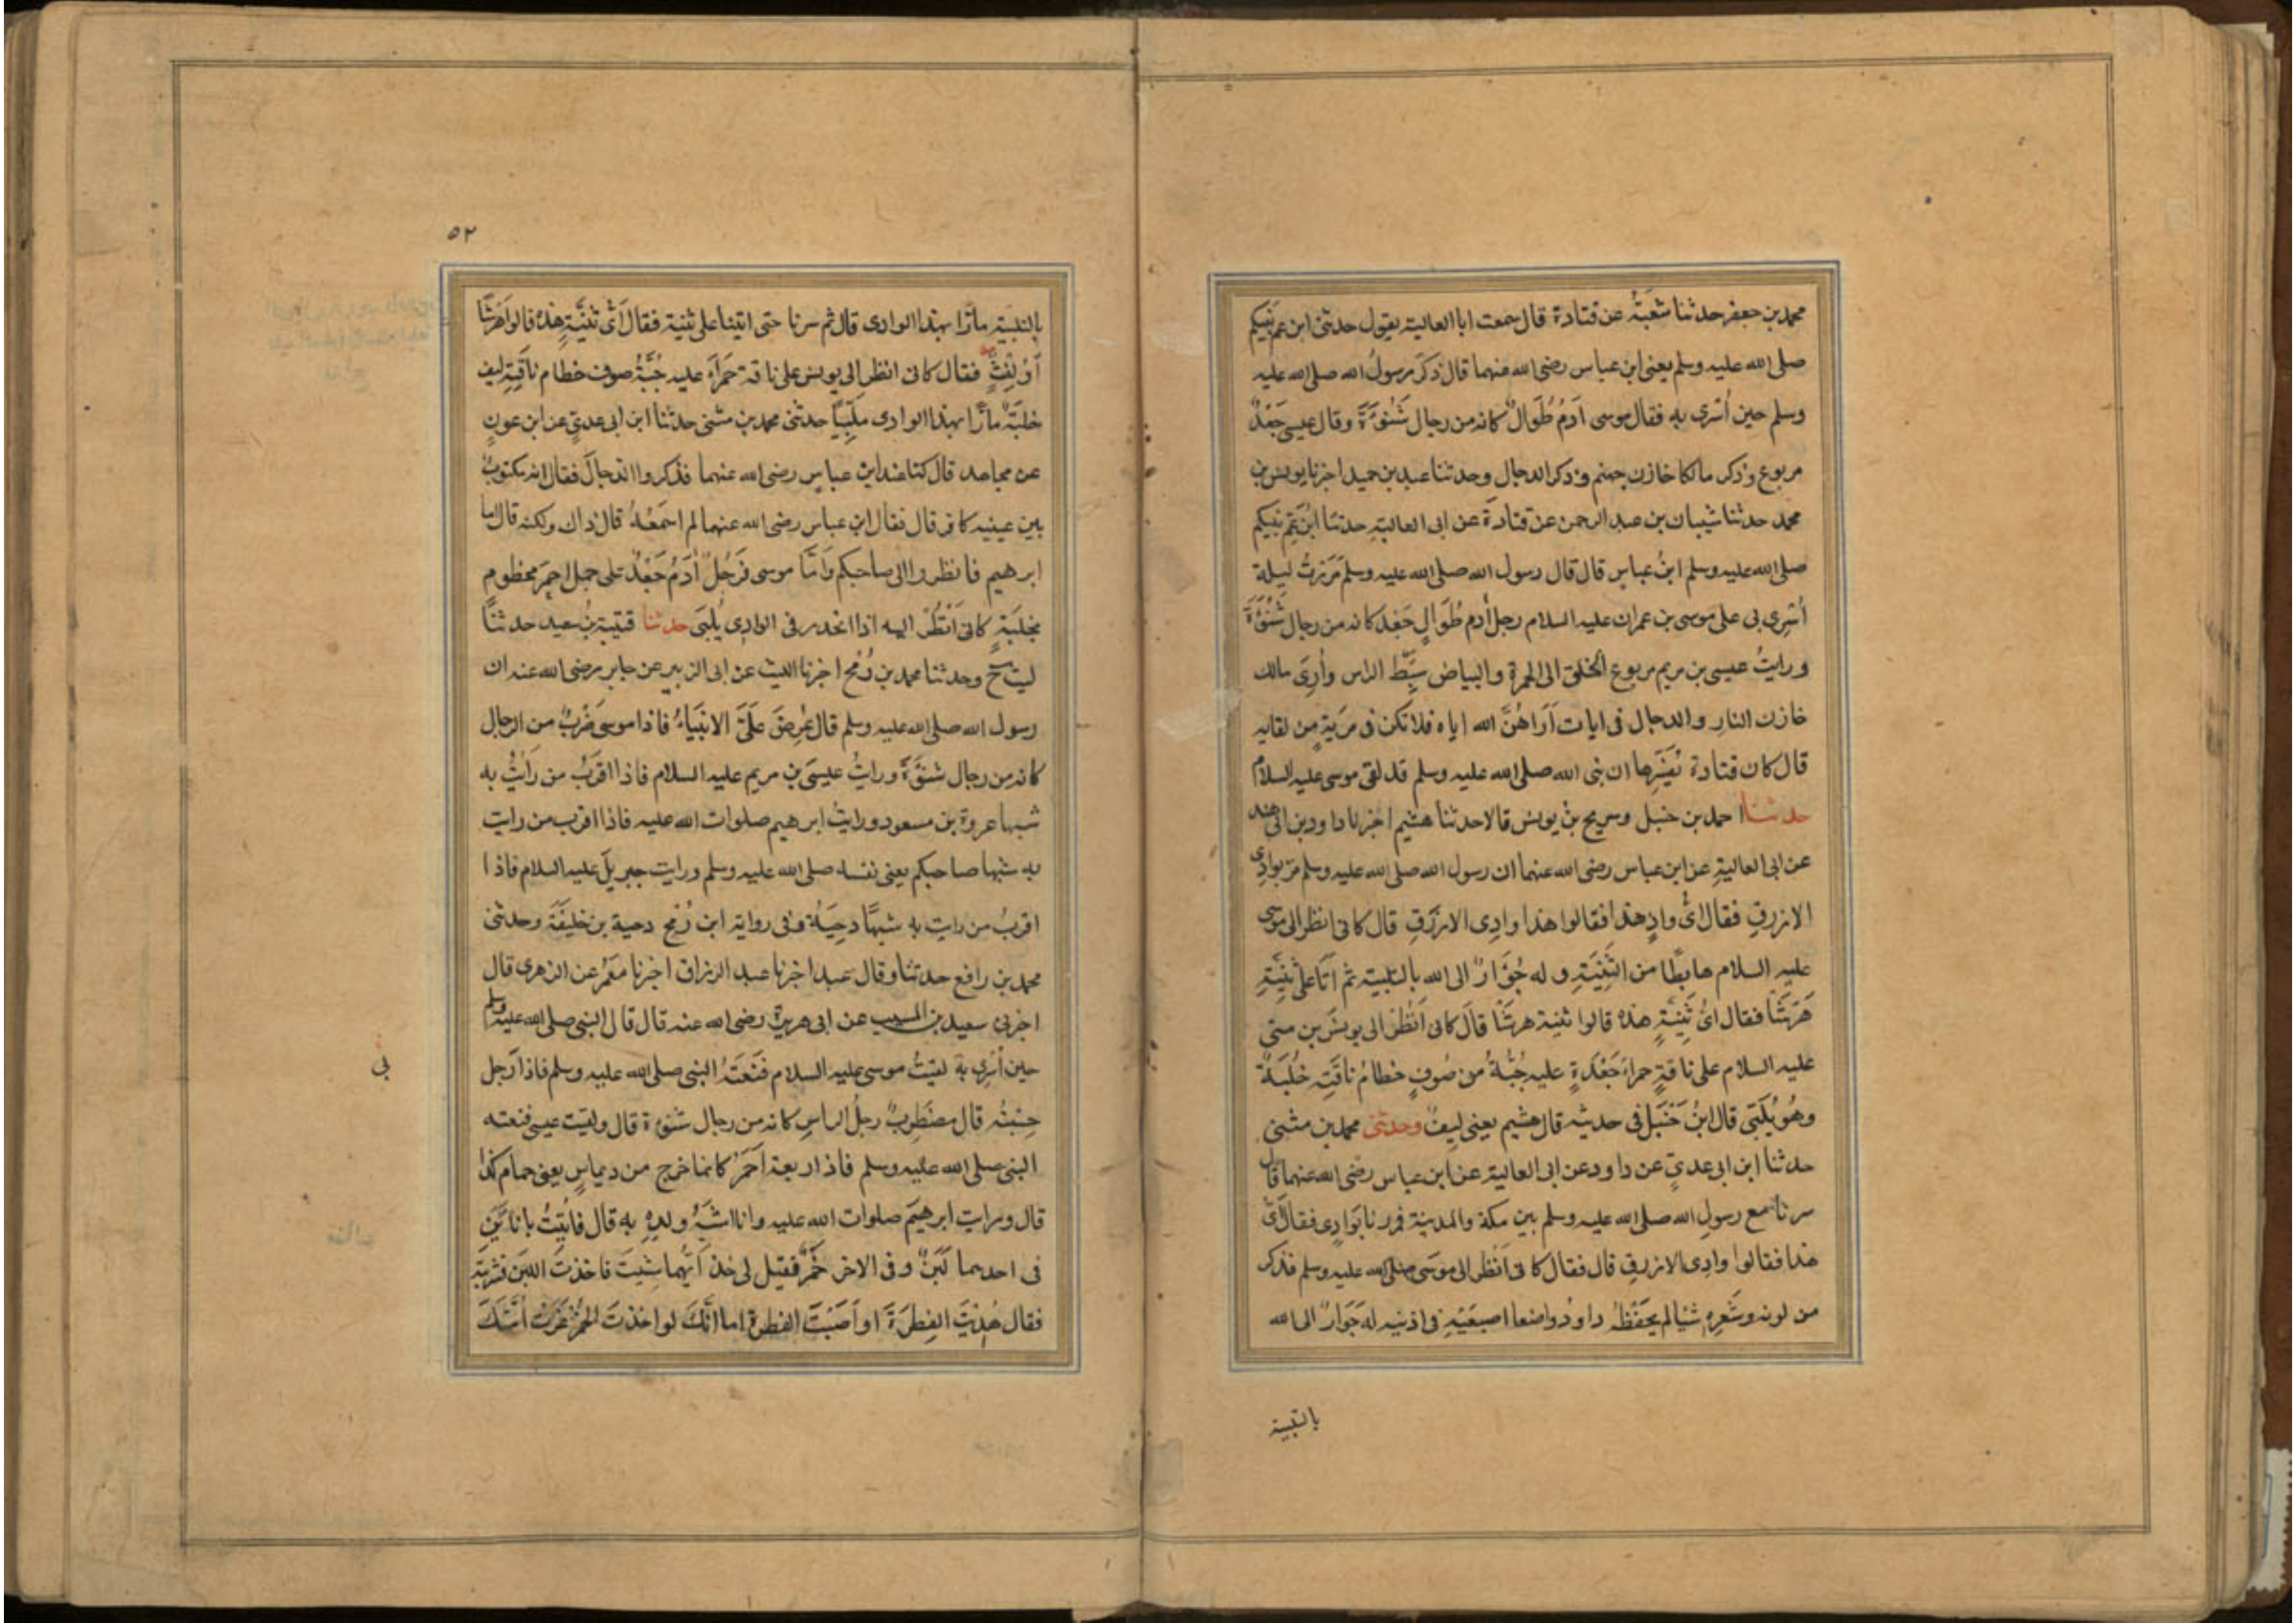 محمد بن جعفر حدثنا شعبَةُ عن قتادة قال سمعت ابا العالية يقول حدثنى ابن عم نبيكم
صلى الله عليه وسلم يعنى ابن عباس رضى الله عنهما قال ذكَرَ رسولُ الله صلى الله عليه
وسلم حين اُسْرى به فقال موسى آدَمُ طُوَالٌ كانه من رجال شَنُوْءَةَ وقال عيسى جَعْدٌ
مربوع وذكر مالكا خازن جهنم وذكر الدجال وحدثنا عبد بن حميد اخبرنا يونس بن
محمد حدثنا شيبان بن عبد الرحمن عن قتادة عن ابى العالية حدثنا ابْنُ عَمِّ نبيكم
صلى الله عليه وسلم ابنُ عباس قال قال رسول الله صلى الله عليه وسلم مَرَرْتُ ليلة
اُسْرِى بى على موسى بن عمران عليه السلام رجل اٰدم طُوَالٍ جَعْد كانه من رجال شَنُوْءَةَ
ورايتُ عيسى بن مريم مربوع الخلق الى الحمرة والبياض سَبِّطَ الراس واُرِىَ مالك
خازن النار والدجال فى ايات اَرَاهُنَّ الله اياه فلا تكن فى مريةٍ من لقايه
قال كان قتادة يُفَسِّرها ان نبى الله صلى الله عليه وسلم قد لقى موسى عليه السلام
حدثنا احمد بن حنبل وسريج بنُ يونس قالا حدثنا هشيم اخبرنا داود بن ابى هند
عن ابى العاليةِ عن ابن عباس رضى الله عنهما ان رسول الله صلى الله عليه وسلم مرّ بوادِى
الازرقِ فقال اىُّ وادٍ هذا فقالوا هذا وادِى الازرَقِ قال كانى انظر الى موسى
عليه السلام هابِطًا من الثَّنِيَّةِ وله جُؤَارٌ الى الله بالتلبية ثم اَتَا على ثَنِيَّةِ
هَرْشٰا فقال اىُّ ثَنِيَّةٍ هذه قالوا ثنية هرشٰا قالَ كانى اَنْظُرُ الى يونسَ بن متى
عليه السلام على ناقةٍ حمراءَ جَعْدَةٍ عليه جُبَّةٌ من صُوفٍ خطامُ ناقَتِه خُلْبَةٌ
وهُو يُلَبّى قال ابنُ حَنْبَل فى حديثه قال هشيم يعنى ليفٌ وحدثنى محمد بن مثنى
حدثنا ابن ابى عدىٍّ عن داود عن ابى العالية عن ابن عباس رضى الله عنهما قال
سرنا مع رسولِ الله صلى الله عليه وسلم بين مكة والمدينة فمررنا بَوادٍى فقال اَىُّ
هذا فقالوا وادِى الازرقِ قال فقال كانى اَنظر الى موسَى صلى الله عليه وسلم فذكر
من لونه وشَعرِه شيًا لم يحفَظْهُ داودُ واضعا اصبعَيْهِ فى اذنيه له جَوَارٌ الى الله
بالتلبية
٥٢
بالتلبية مارًّا بهذا الوادى قال ثم سرنا حتى اتينا على ثنية فقال اَىُّ ثنيَّةٍ هذه قالوا هَرْشَا
اَوْ لِفْتٌ فقال كانى انظر الى يونس على ناقة حَمرَآء عليه جُبَّةُ صوف خطام ناقَتِهِ ليف
خلبَةٌ مارًّا بهذا الوادى ملَبِّيًا حدثنى محمد بن مثنى حدثنا ابن ابى عدىٍّ عن ابن عونٍ
عن مجاهد قال كنا عند ابن عباس رضى الله عنهما فذكروا الدجالَ فقال انه مكتوبٌ
بين عينيه كافر قال فقال ابن عباس رضى الله عنهما لم اسمَعْهُ قال ذاك ولكنه قال اما
ابرهيم فانظروا الى صاحبكم وَاَمَّا موسى فَرَجُلٌ اٰدَمُ جَعْدٌ على جمل احمرَ مخطوم
بخلبَةٍ كانى اَنْظُرُ اليه اذا انحدر فى الوادِى يُلبّى حدثنا قتيبة بنُ سعيد حدثنا
ليث ح وحدثنا محمد بن رُمْح اخبرنا الليث عن ابى الزبير عن جابر رضى الله عنه ان
رسول الله صلى الله عليه وسلم قال عُرِضَ علَىَّ الانبيَاءُ فاذا موسىَ ضَرْبٌ من الرجال
كانه من رجال شنوْءَةَ ورايتُ عيسَى بن مريم عليه السلام فاذا اقرَبُ من رَايْتُ به
شبها عروة بن مسعود ورايتُ ابرهيم صلوات الله عليه فاذا اقرب من رايت
به شبها صاحبكم يعنى نفسه صلى الله عليه وسلم ورايت جبريلَ عليه السلام فاذا
اقربُ من رايت به شبهًا دحِيَةُ وفى رواية ابن رُمْح دحية بن خليفَةَ وحدثنى
محمد بن رافع حدثنا وقال عبد اخبرنا عبد الرزاق اخبرنا معْمرُ عن الزهرى قال
اخبرنى سعيد بن المسيب عن ابى هريرة رضى الله عنه قال قال النبى صلى الله عليه وسلم
حين اُسْرِى بهٖ لقيتُ موسى عليه السلام فنَعَتَهُ النبى صلى الله عليه وسلم فاذا رَجل
حسِبْتُه قال مضطَرِبٌ رجلُ الراسِ كانه من رجال شنوءة قال ولقيت عيسى فنعته
النبى صلى الله عليه وسلم فاذا ربعة احمَرُ كانما خرج من ديماسٍ يعنى حمام كذا
قال ورايت ابرهيمَ صلوات الله عليه وانا اشبَهُ ولدِهِ بهِ قال فاُتِيتُ باناءَيْنِ
فى احدهما لَبَنٌ وفى الاخر خَمْرٌ فقيل لى خذ اَيَّهُما شِيتَ فاخذتَ اللبَن فشربته
فقال هُدِيْتَ الفِطرَةَ او اَصَبْتَ الفطرة اما انَّكَ لو اخذتَ الخمرَ غوَتْ اُمَّتُكَ
بى